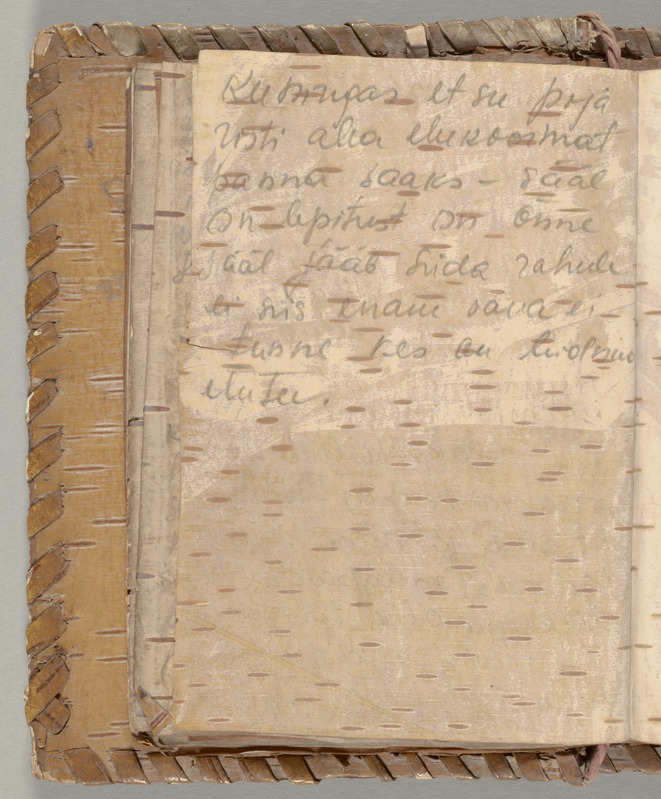 Kuningas et su poja
risti alla elukoormat
panna saaks - sääl
on lepitust on õnne
sääl jääb süda rahule
ei siis enam vaeva ei
tunne kes on tüdinud
elutee.